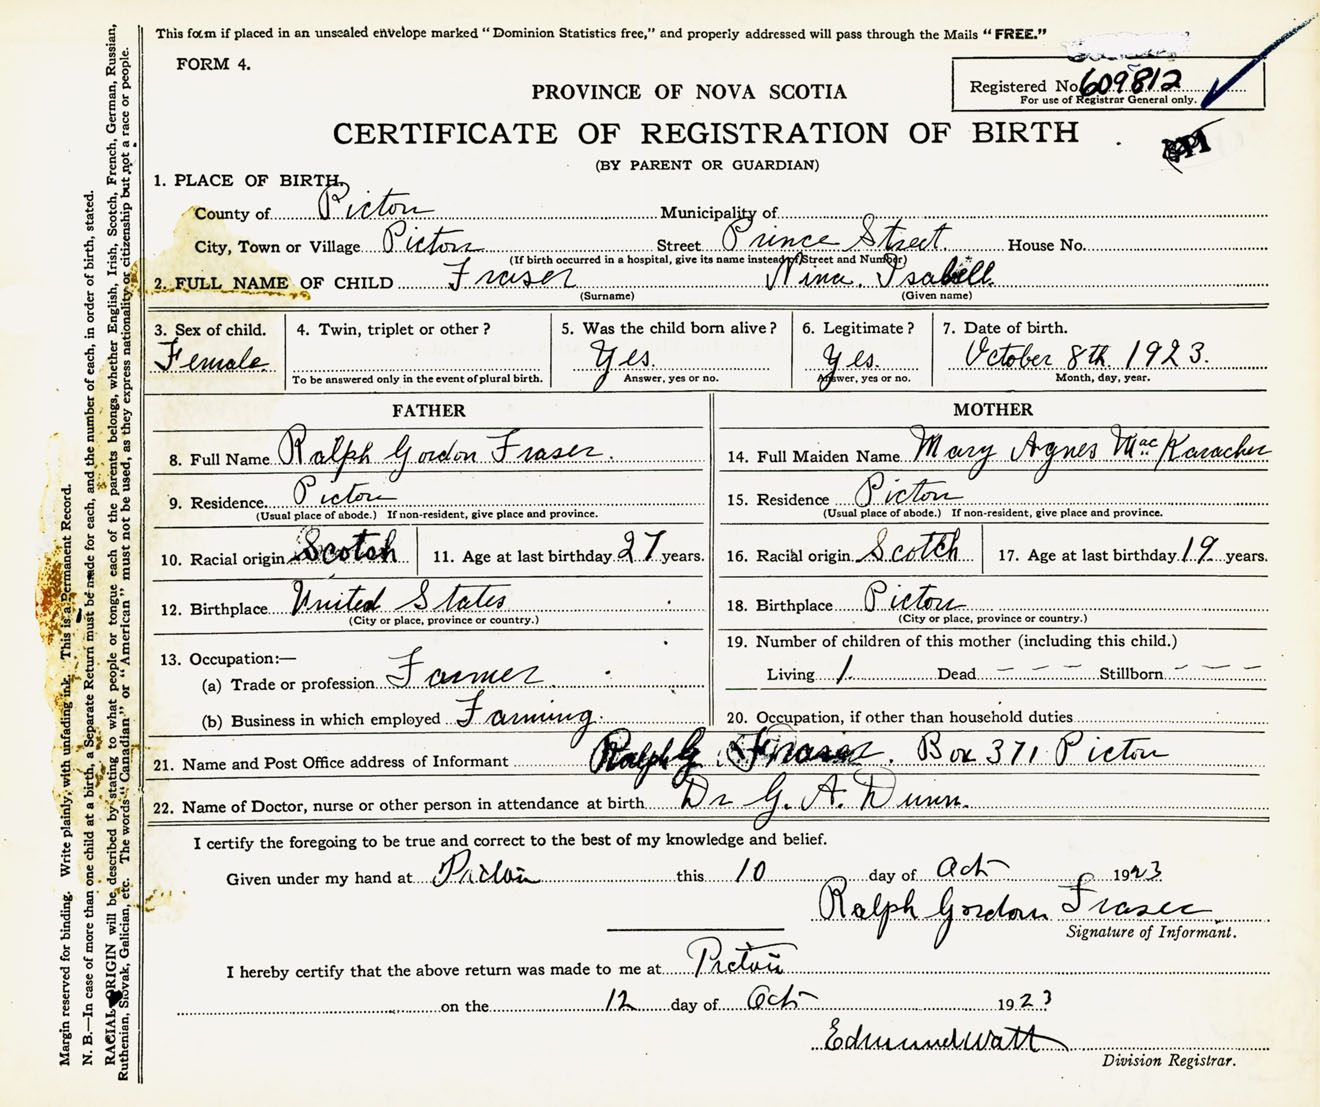 This form if placed in an unsealed envelope marked "Dominion Statistics free," and properly addressed will pass through the Mails "FREE."
FORM 4.
Registered No. 609812
For use of Registrar General only.
PROVINCE OF NOVA SCOTIA
CERTIFICATE OF REGISTRATION OF BIRTH
(BY PARENT OR GUARDIAN)
1. PLACE OF BIRTH,
County of Pictou Municipality of
City, Town or Village Pictou Street Prince Street. House No.
(If birth occurred in a hospital, give its name instead of Street and Number)
2. FULL NAME OF CHILD Fraser Nina Isabell
(Surname) (Given name)
3. Sex of child. 4. Twin, triplet or other? 5. Was the child born alive? 6. Legitimate? 7. Date of birth.
Female. Yes. Yes. October 8th. 1923.
To be answered only in the event of plural birth. Answer, yes or no. Answer, yes or no. Month, day, year.
FATHER MOTHER
8. Full Name Ralph Gordon Fraser. 14. Full Maiden Name Mary Agnes MacKaracher
9. Residence Pictou 15. Residence Pictou
(Usual place of abode.) If non-resident, give place and province. (Usual place of abode.) If non-resident, give place and province.
10. Racial origin Scotch 11. Age at last birthday 27 years. 16. Racial origin Scotch 17. Age at last birthday 19 years.
12. Birthplace United States 18. Birthplace Pictou
(City or place, province or country.) (City or place, province or country.)
13. Occupation:— 19. Number of children of this mother (including this child.)
(a) Trade or profession Farmer Living 1. Dead – – – Stillborn – – –
(b) Business in which employed Farming. 20. Occupation, if other than household duties
21. Name and Post Office address of Informant Ralph G. Fraser. Box 371 Pictou
22. Name of Doctor, nurse or other person in attendance at birth Dr G. A. Dunn.
I certify the foregoing to be true and correct to the best of my knowledge and belief.
Given under my hand at Pictou this 10 day of Oct 1923
Ralph Gordon Fraser
Signature of Informant.
I hereby certify that the above return was made to me at Pictou
on the 12 day of Oct 1923
Edmund Watt
Division Registrar.
Margin reserved for binding. Write plainly, with unfading ink. This is a Permanent Record.
N. B.—In case of more than one child at a birth, a Separate Return must be made for each, and the number of each, in order of birth, stated.
RACIAL ORIGIN will be described by stating to what people or tongue each of the parents belongs, whether English, Irish, Scotch, French, German, Russian,
Ruthenian, Slovak, Galician, etc. The words "Canadian" or "American" must not be used, as they express nationality or citizenship but not a race or people.